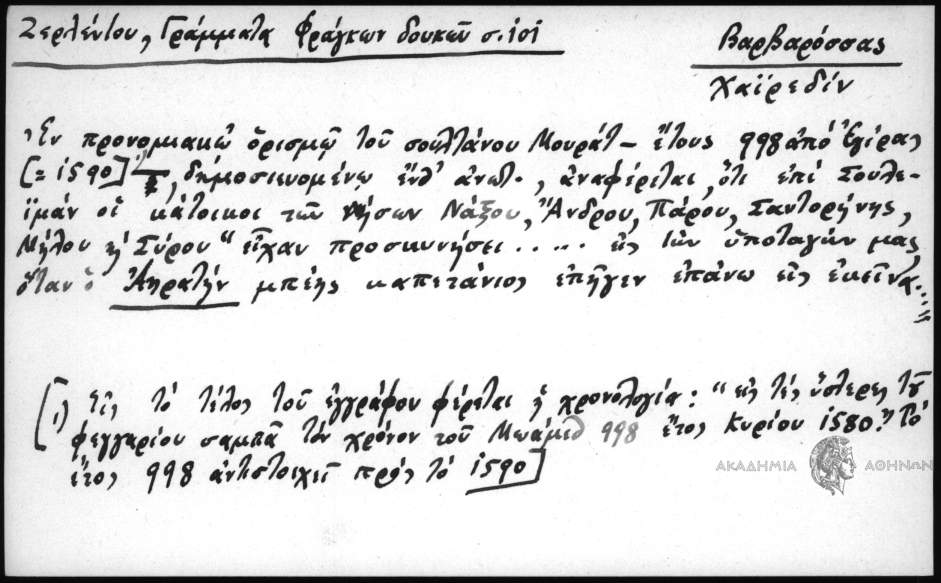 Ζερλέντου, Γράμματα Φράγκων δουκῶν σ. 101
Βαρβαρόσσας
Χαϊρεδίν
Ἐν προνομιακῷ ὁρισμῷ τοῦ σουλτάνου Μουράτ – ἔτους 998 ἀπό Ἐγίρας
[= 1590], δημοσιευομένῳ ἔνθ' ἀνωτ., ἀναφέρεται, ὅτι ἐπί Σουλε-
ϊμάν οἱ κάτοικοι τῶν νήσων Νάξου, Ἄνδρου, Πάρου, Σαντορήνης,
Μήλου ἢ Σύρου "εἶχαν προσκυνήσει ..... εἰς τὴν ὑποταγήν μας
ὅταν ὁ Ἀηρατήν μπέης καπετάνιος ἐπῆγεν ἐπάνω εἰς ἐκεῖνα..."
[1) Εἰς τὸ τέλος τοῦ ἐγγράφου φέρεται ἡ χρονολογία: "εἰς τές ὕστερες τοῦ
φεγγαρίου σαμπᾶ τὸν χρόνον τοῦ Μωάμεδ 998 ἔτος Κυρίου 1580". Τὸ
ἔτος 998 ἀντιστοιχεῖ πρὸς τὸ 1590]
ΑΚΑΔΗΜΙΑ ΑΘΗΝΩΝ